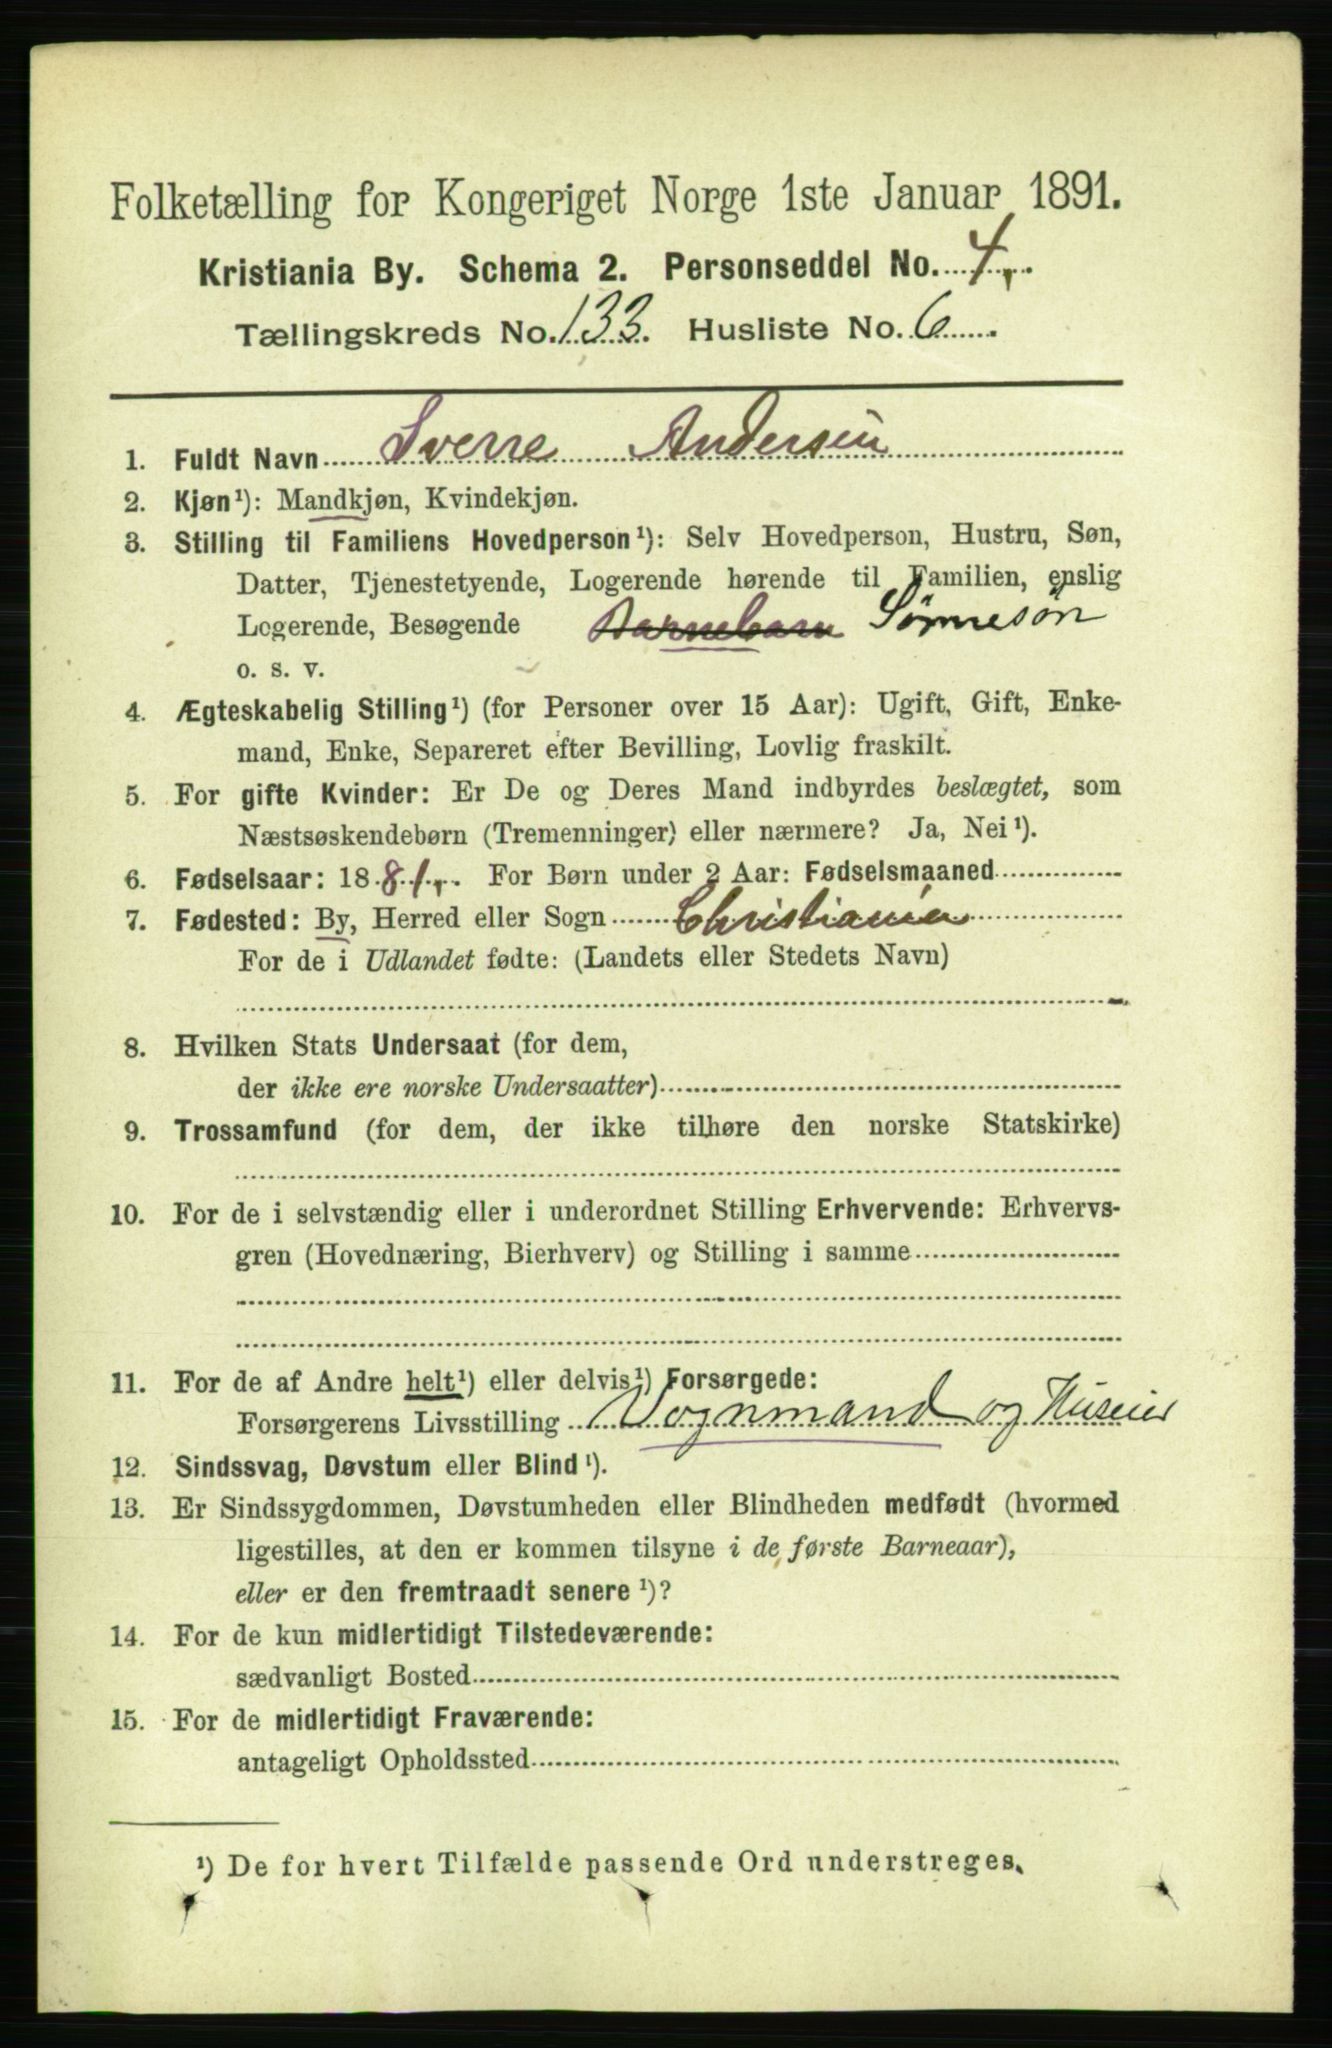 Folketælling for Kongeriget Norge 1ste Januar 1891.
Kristiania By. Schema 2. Personseddel No. 4,
Tællingskreds No. 133. Husliste No. 6
1. Fuldt Navn Sverre Andersen
2. Kjøn¹): Mandkjøn, Kvindekjøn.
3. Stilling til Familiens Hovedperson¹): Selv Hovedperson, Hustru, Søn,
Datter, Tjenestetyende, Logerende hørende til Familien, enslig
Logerende, Besøgende Barnebarn Sønneson
o. s. v.
4. Ægteskabelig Stilling¹) (for Personer over 15 Aar): Ugift, Gift, Enke-
mand, Enke, Separeret efter Bevilling, Lovlig fraskilt.
5. For gifte Kvinder: Er De og Deres Mand indbyrdes beslægtet, som
Næstsøskendebørn (Tremenninger) eller nærmere? Ja, Nei¹).
6. Fødselsaar: 1881,. For Børn under 2 Aar: Fødselsmaaned
7. Fødested: By, Herred eller Sogn Christiania
For de i Udlandet fødte: (Landets eller Stedets Navn)
8. Hvilken Stats Undersaat (for dem,
der ikke ere norske Undersaatter)
9. Trossamfund (for dem, der ikke tilhøre den norske Statskirke)
10. For de i selvstændig eller i underordnet Stilling Erhvervende: Erhvervs-
gren (Hovednæring, Bierhverv) og Stilling i samme
11. For de af Andre helt¹) eller delvis¹) Forsørgede:
Forsørgerens Livsstilling Vognmand og Huseier
12. Sindssvag, Døvstum eller Blind¹).
13. Er Sindssygdommen, Døvstumheden eller Blindheden medfødt (hvormed
ligestilles, at den er kommen tilsyne i de første Barneaar),
eller er den fremtraadt senere¹)?
14. For de kun midlertidigt Tilstedeværende:
sædvanligt Bosted
15. For de midlertidigt Fraværende:
antageligt Opholdssted
¹) De for hvert Tilfælde passende Ord understreges.